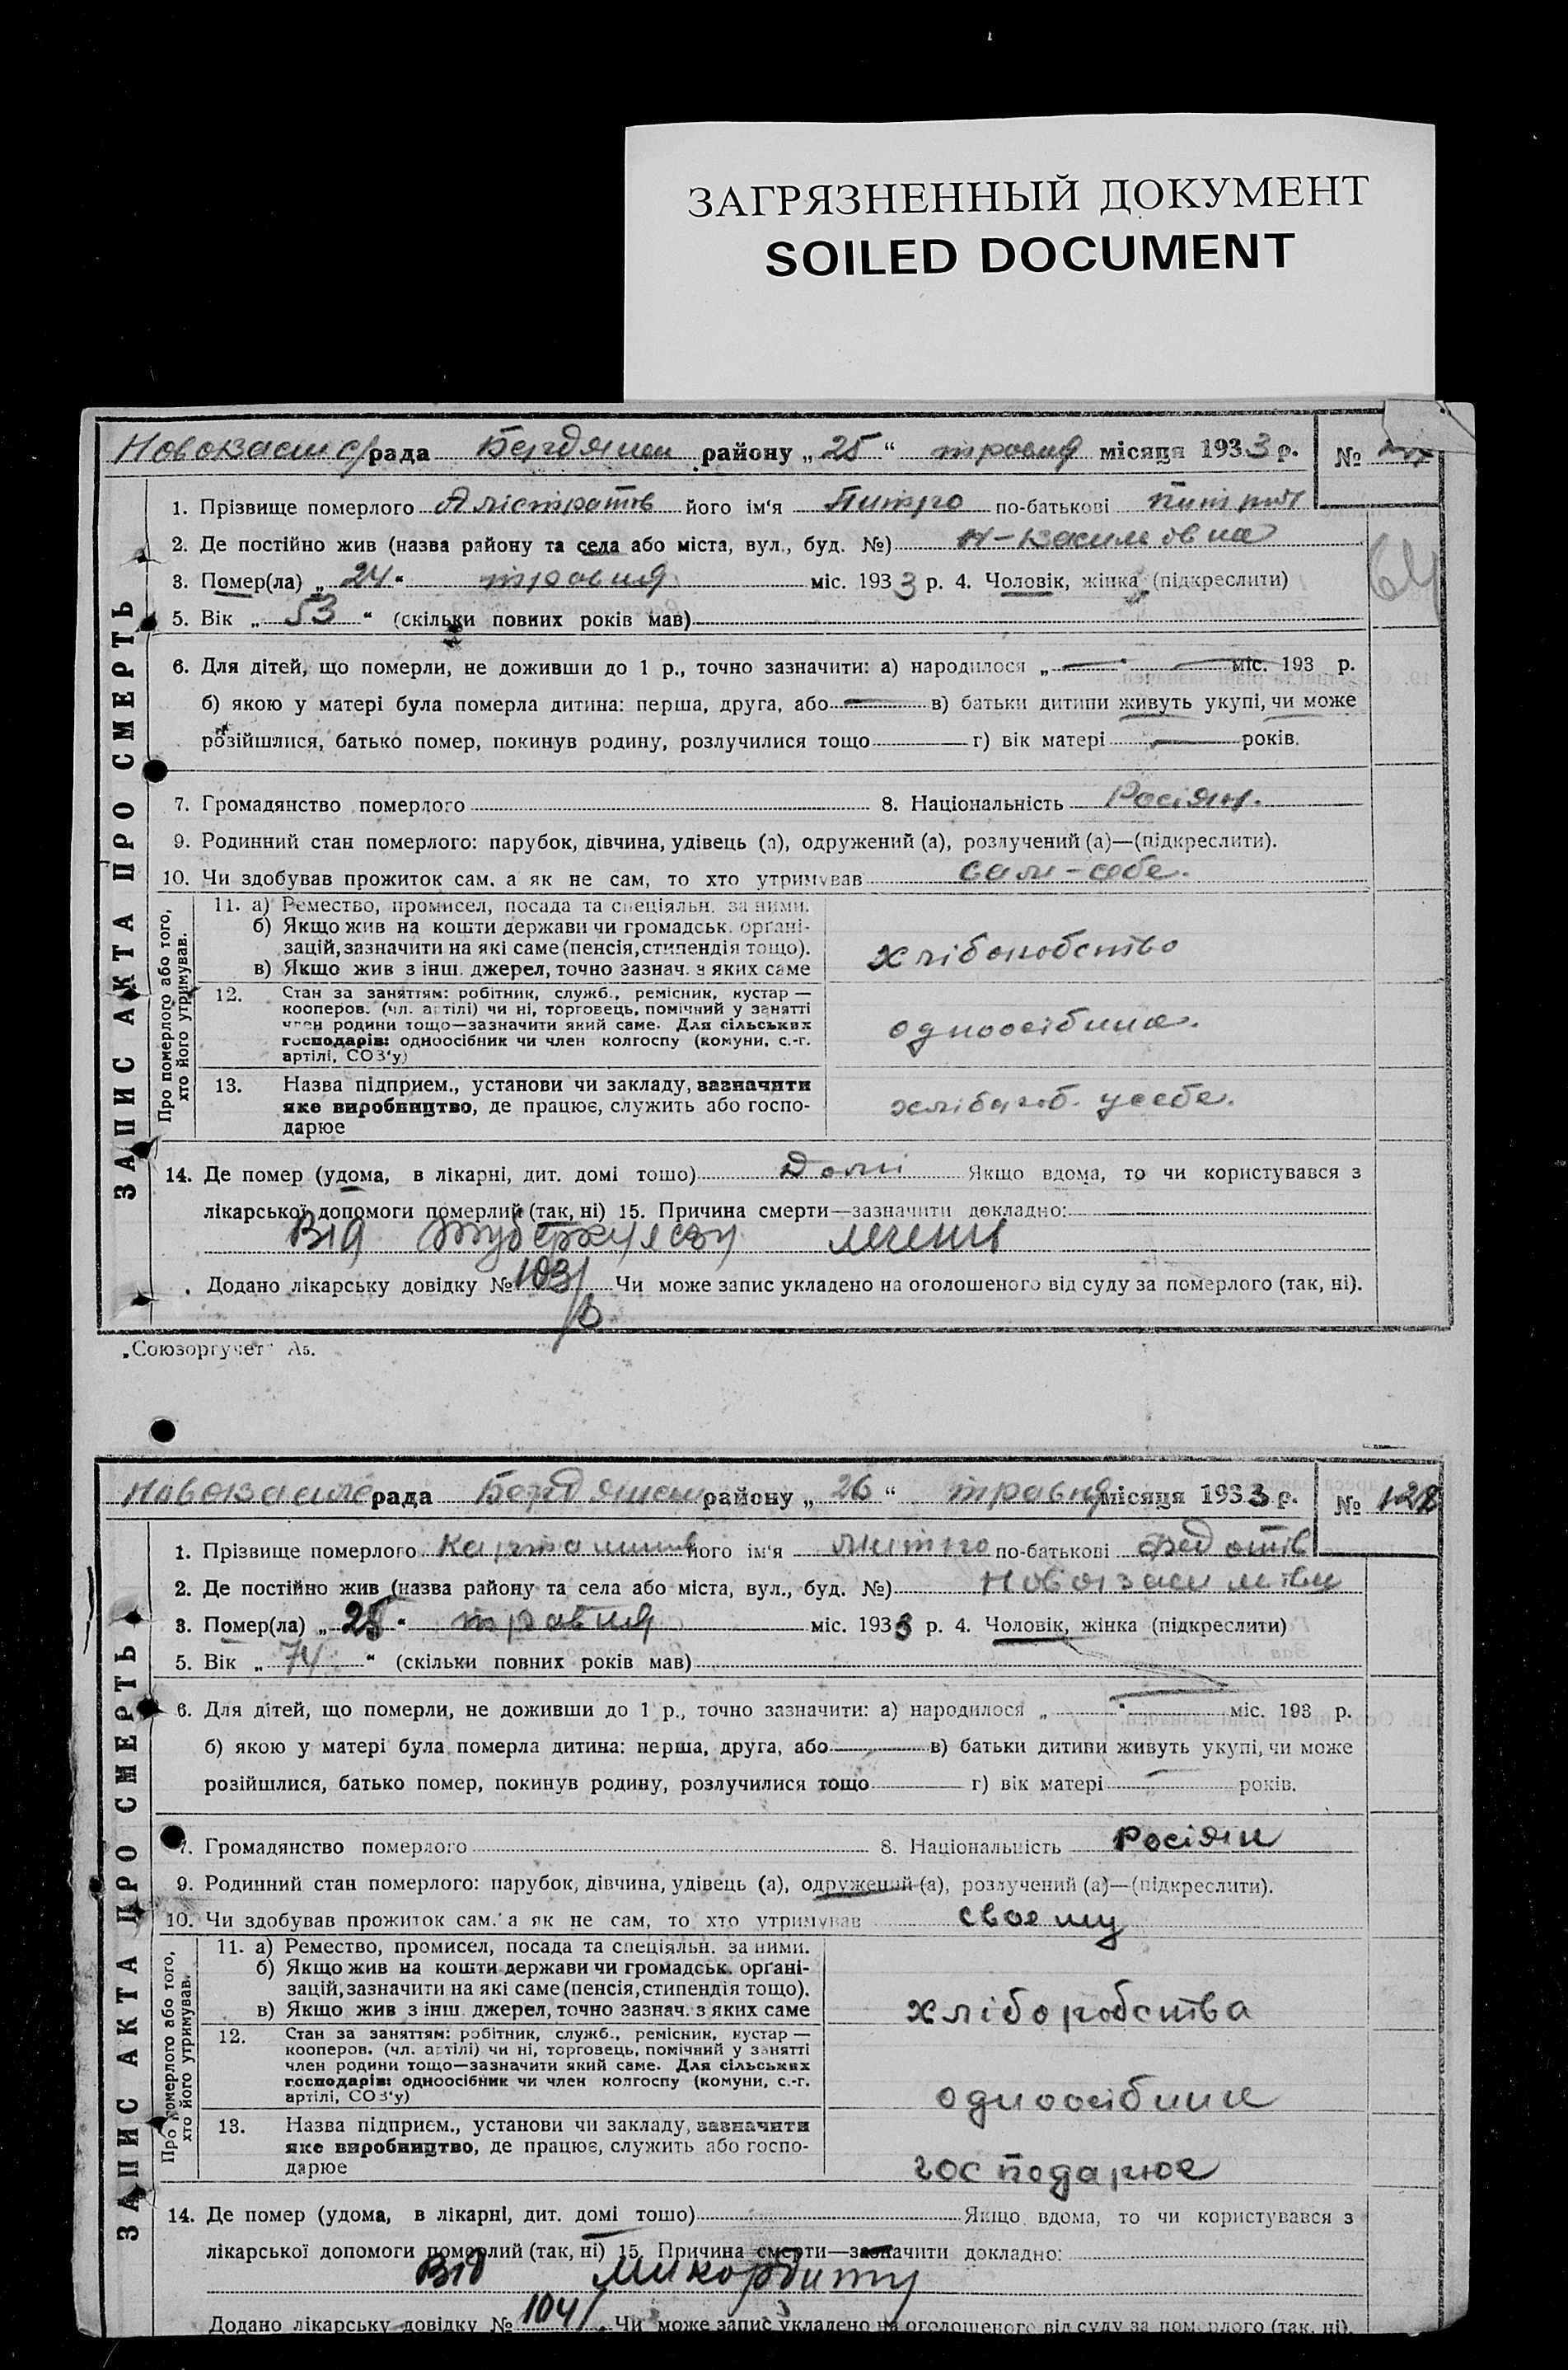 ЗАГРЯЗНЕННЫЙ ДОКУМЕНТ
SOILED DOCUMENT
рада району „25“ травня місяця 1933 р. №
1. Прізвище померлого його ім'я по-батькові
2. Де постійно жив (назва району та села або міста, вул., буд. №)
3. Помер(ла) „24“ травня міс. 1933 р. 4. Чоловік, жінка (підкреслити)
64
5. Вік „53“ (скільки повних років мав)
6. Для дітей, що померли, не доживши до 1 р., точно зазначити: а) народилося „ “ міс. 193 р.
б) якою у матері була померла дитина: перша, друга, або в) батьки дитини живуть укупі, чи може
розійшлися, батько помер, покинув родину, розлучилися тощо г) вік матері років.
7. Громадянство померлого 8. Національність Росіян.
9. Родинний стан померлого: парубок, дівчина, удівець (а), одружений (а), розлучений (а)—(підкреслити).
10. Чи здобував прожиток сам, а як не сам, то хто утримував сам-себе.
ЗАПИС АКТА ПРО СМЕРТЬ
Про померлого або того, хто його утримував.
11. а) Ремество, промисел, посада та спеціяльн. за ними.
б) Якщо жив на кошти держави чи громадськ. органі-
зацій, зазначити на які саме (пенсія, стипендія тощо).
в) Якщо жив з інш. джерел, точно зазнач. з яких саме
хліборобство
12. Стан за заняттям: робітник, служб., ремісник, кустар —
кооперов. (чл. артілі) чи ні, торговець, помічний у занятті
член родини тощо—зазначити який саме. Для сільських
господарів: одноосібник чи член колгоспу (комуни, с.-г.
артілі, СОЗ'у)
13. Назва підприєм., установи чи закладу, зазначити
яке виробництво, де працює, служить або госпо-
дарює
14. Де помер (удома, в лікарні, дит. домі тошо) Домі Якщо вдома, то чи користувався з
лікарської допомоги померлий (так, ні) 15. Причина смерти—зазначити докладно:
Від туберкулєзу легенів
Додано лікарську довідку № 103/ Чи може запис укладено на оголошеного від суду за померлого (так, ні).
„Союзоргучет“ А5.
рада району „26“ травня місяця 1933 р. № 128
1. Прізвище померлого його ім'я по-батькові Федотів
2. Де постійно жив (назва району та села або міста, вул., буд. №)
3. Помер(ла) „25“ травня міс. 1933 р. 4. Чоловік, жінка (підкреслити)
5. Вік „74“ (скільки повних років мав)
6. Для дітей, що померли, не доживши до 1 р., точно зазначити: а) народилося „ “ міс. 193 р.
б) якою у матері була померла дитина: перша, друга, або в) батьки дитини живуть укупі, чи може
розійшлися, батько помер, покинув родину, розлучилися тощо г) вік матері років.
7. Громадянство померлого 8. Національність Росіян
9. Родинний стан померлого: парубок, дівчина, удівець (а), одружений (а), розлучений (а)—(підкреслити).
10. Чи здобував прожиток сам, а як не сам, то хто утримував своему
ЗАПИС АКТА ПРО СМЕРТЬ
Про померлого або того, хто його утримував.
11. а) Ремество, промисел, посада та спеціяльн. за ними.
б) Якщо жив на кошти держави чи громадськ. органі-
зацій, зазначити на які саме (пенсія, стипендія тощо).
в) Якщо жив з інш. джерел, точно зазнач. з яких саме
хліборобства
12. Стан за заняттям: робітник, служб., ремісник, кустар —
кооперов. (чл. артілі) чи ні, торговець, помічний у занятті
член родини тощо—зазначити який саме. Для сільських
господарів: одноосібник чи член колгоспу (комуни, с.-г.
артілі, СОЗ'у)
одноосібник
13. Назва підприєм., установи чи закладу, зазначити
яке виробництво, де працює, служить або госпо-
дарює
господарює
14. Де помер (удома, в лікарні, дит. домі тошо) Якщо вдома, то чи користувався з
лікарської допомоги померлий (так, ні) 15. Причина смерти—зазначити докладно:
Від
Додано лікарську довідку № 104/ Чи може запис укладено на оголошеного від суду за померлого (так, ні).